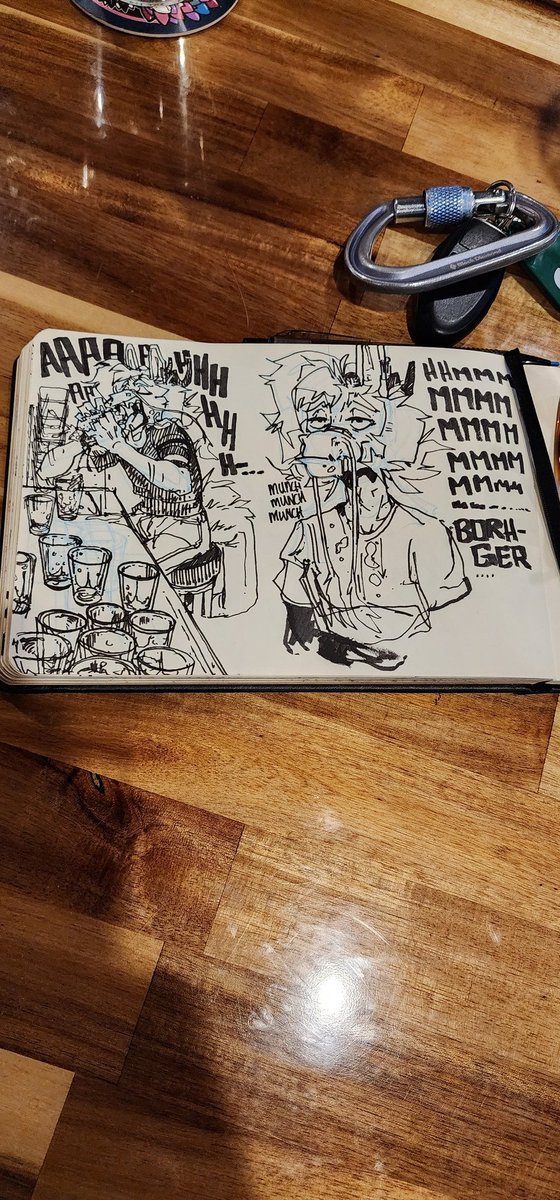 HH
H
H-...
MUNCH
MUNCH
MUNCH
HHMMM
MMMM
MMMM
MMMM
MMMM
BORH-
GER
....
Black Diamond